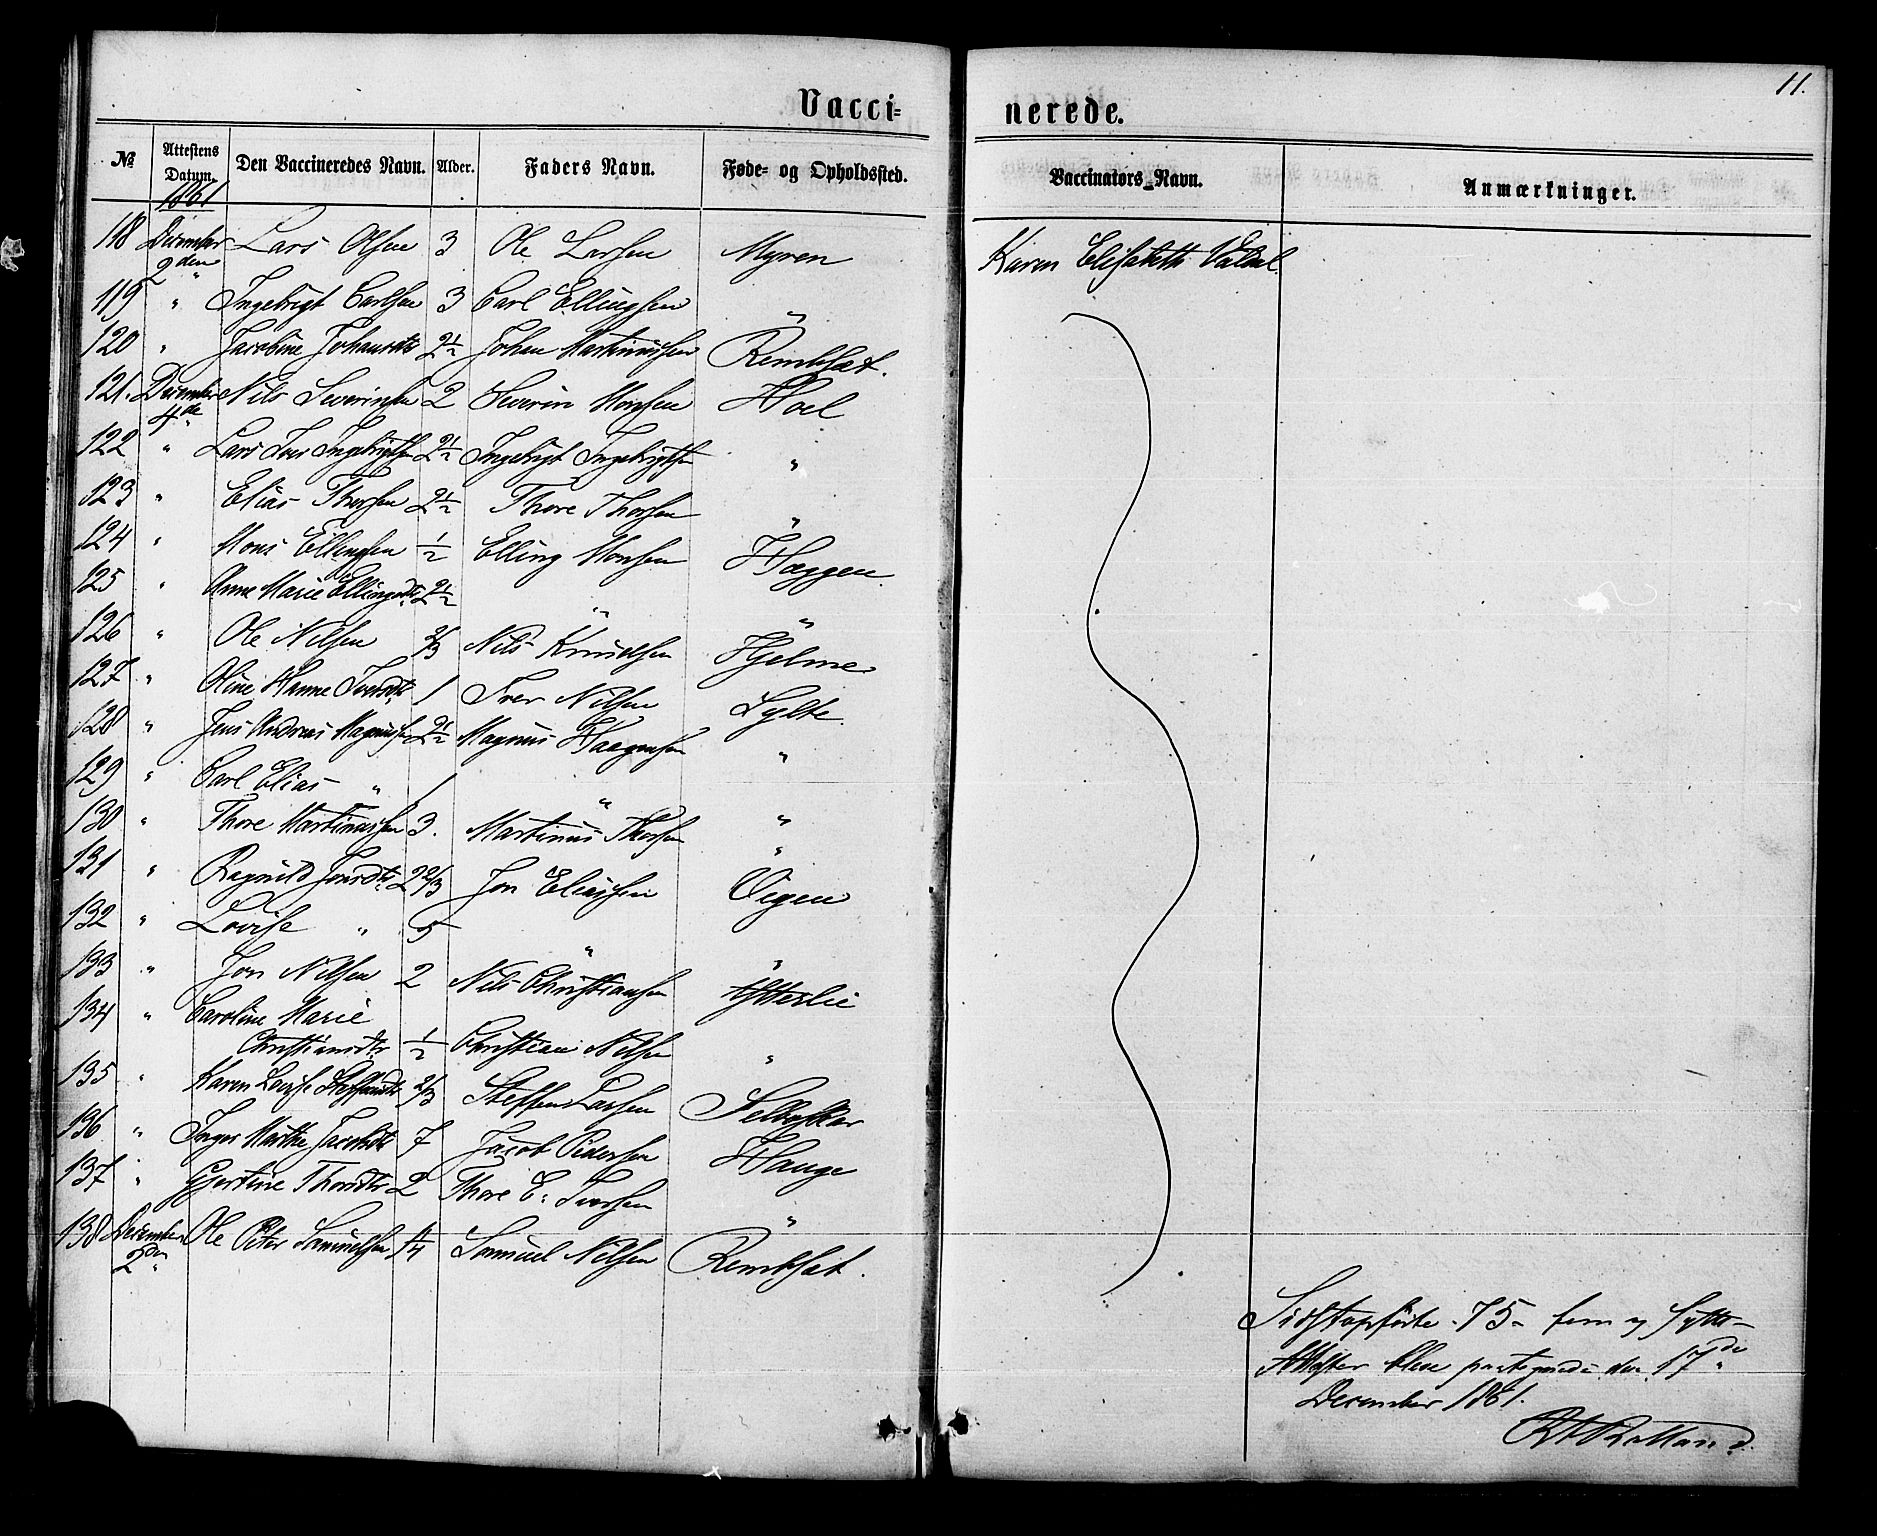 11.
Vacci=nerede.
№ Attestens Datum. Den Vaccineredes Navn. Alder. Faders Navn. Føde= og Opholdssted. Vaccinators Navn. Anmærkninger.
1861
118 December 2den Lars Olsen 3 Ole Larsen Myren Karen Elisabeth
119 " Ingebrigt Carlsen 3 Carl Ellingsen "
120 " Jacobine Johansdtr 2½ Johan Martinussen Remksæt.
121. December 4de Nils Severinsen 2 Severin Monsen Hoel
122 " Lars Ingebrigtsen 2½ Ingebrigt Ingebrigtsen "
123 " Elias Thorsen 2½ Thore Thorsen "
124 " Mons Ellingsen ½ Elling Monsen Hæggen
125 " Anne Marie Ellingsdtr. 2½ " "
126 " Ole Nilsen 2/3 Nils Knudsen Hjelme
127 " Oline Hanne Iversdtr 1 Iver Nilsen Sylte
128 " Jens Andreas Magnussen 2½ Magnus Haagensen "
129 " Carl Elias " 1 " "
130 " Thore Martinussen 3. Martinus Thorsen "
131 " Ragnild Jonsdtr. 2 2/3 Jon Eliassen Øigen
132 " Lovise " 5 " "
133 " Jon Nilsen 2 Nils Christiansen Ytterlie
134 " Caroline Marie
Christiansdtr ½ Christian Nilsen "
135 " Karen Lovise Steffensdtr 2/3 Steffen Larsen
136 " Inger Marthe Jacobsdtr 7 Jacob Pedersen Hauge
137 " Gjertine Thorsdtr 2 Thore E. Iversen "
138 December 2den Ole Peter Samuelsen ¼ Samuel Nilsen Remksæt.
Sidstopførte 75 - fem og sytti -
Attester bleve den 17de
December 1861.